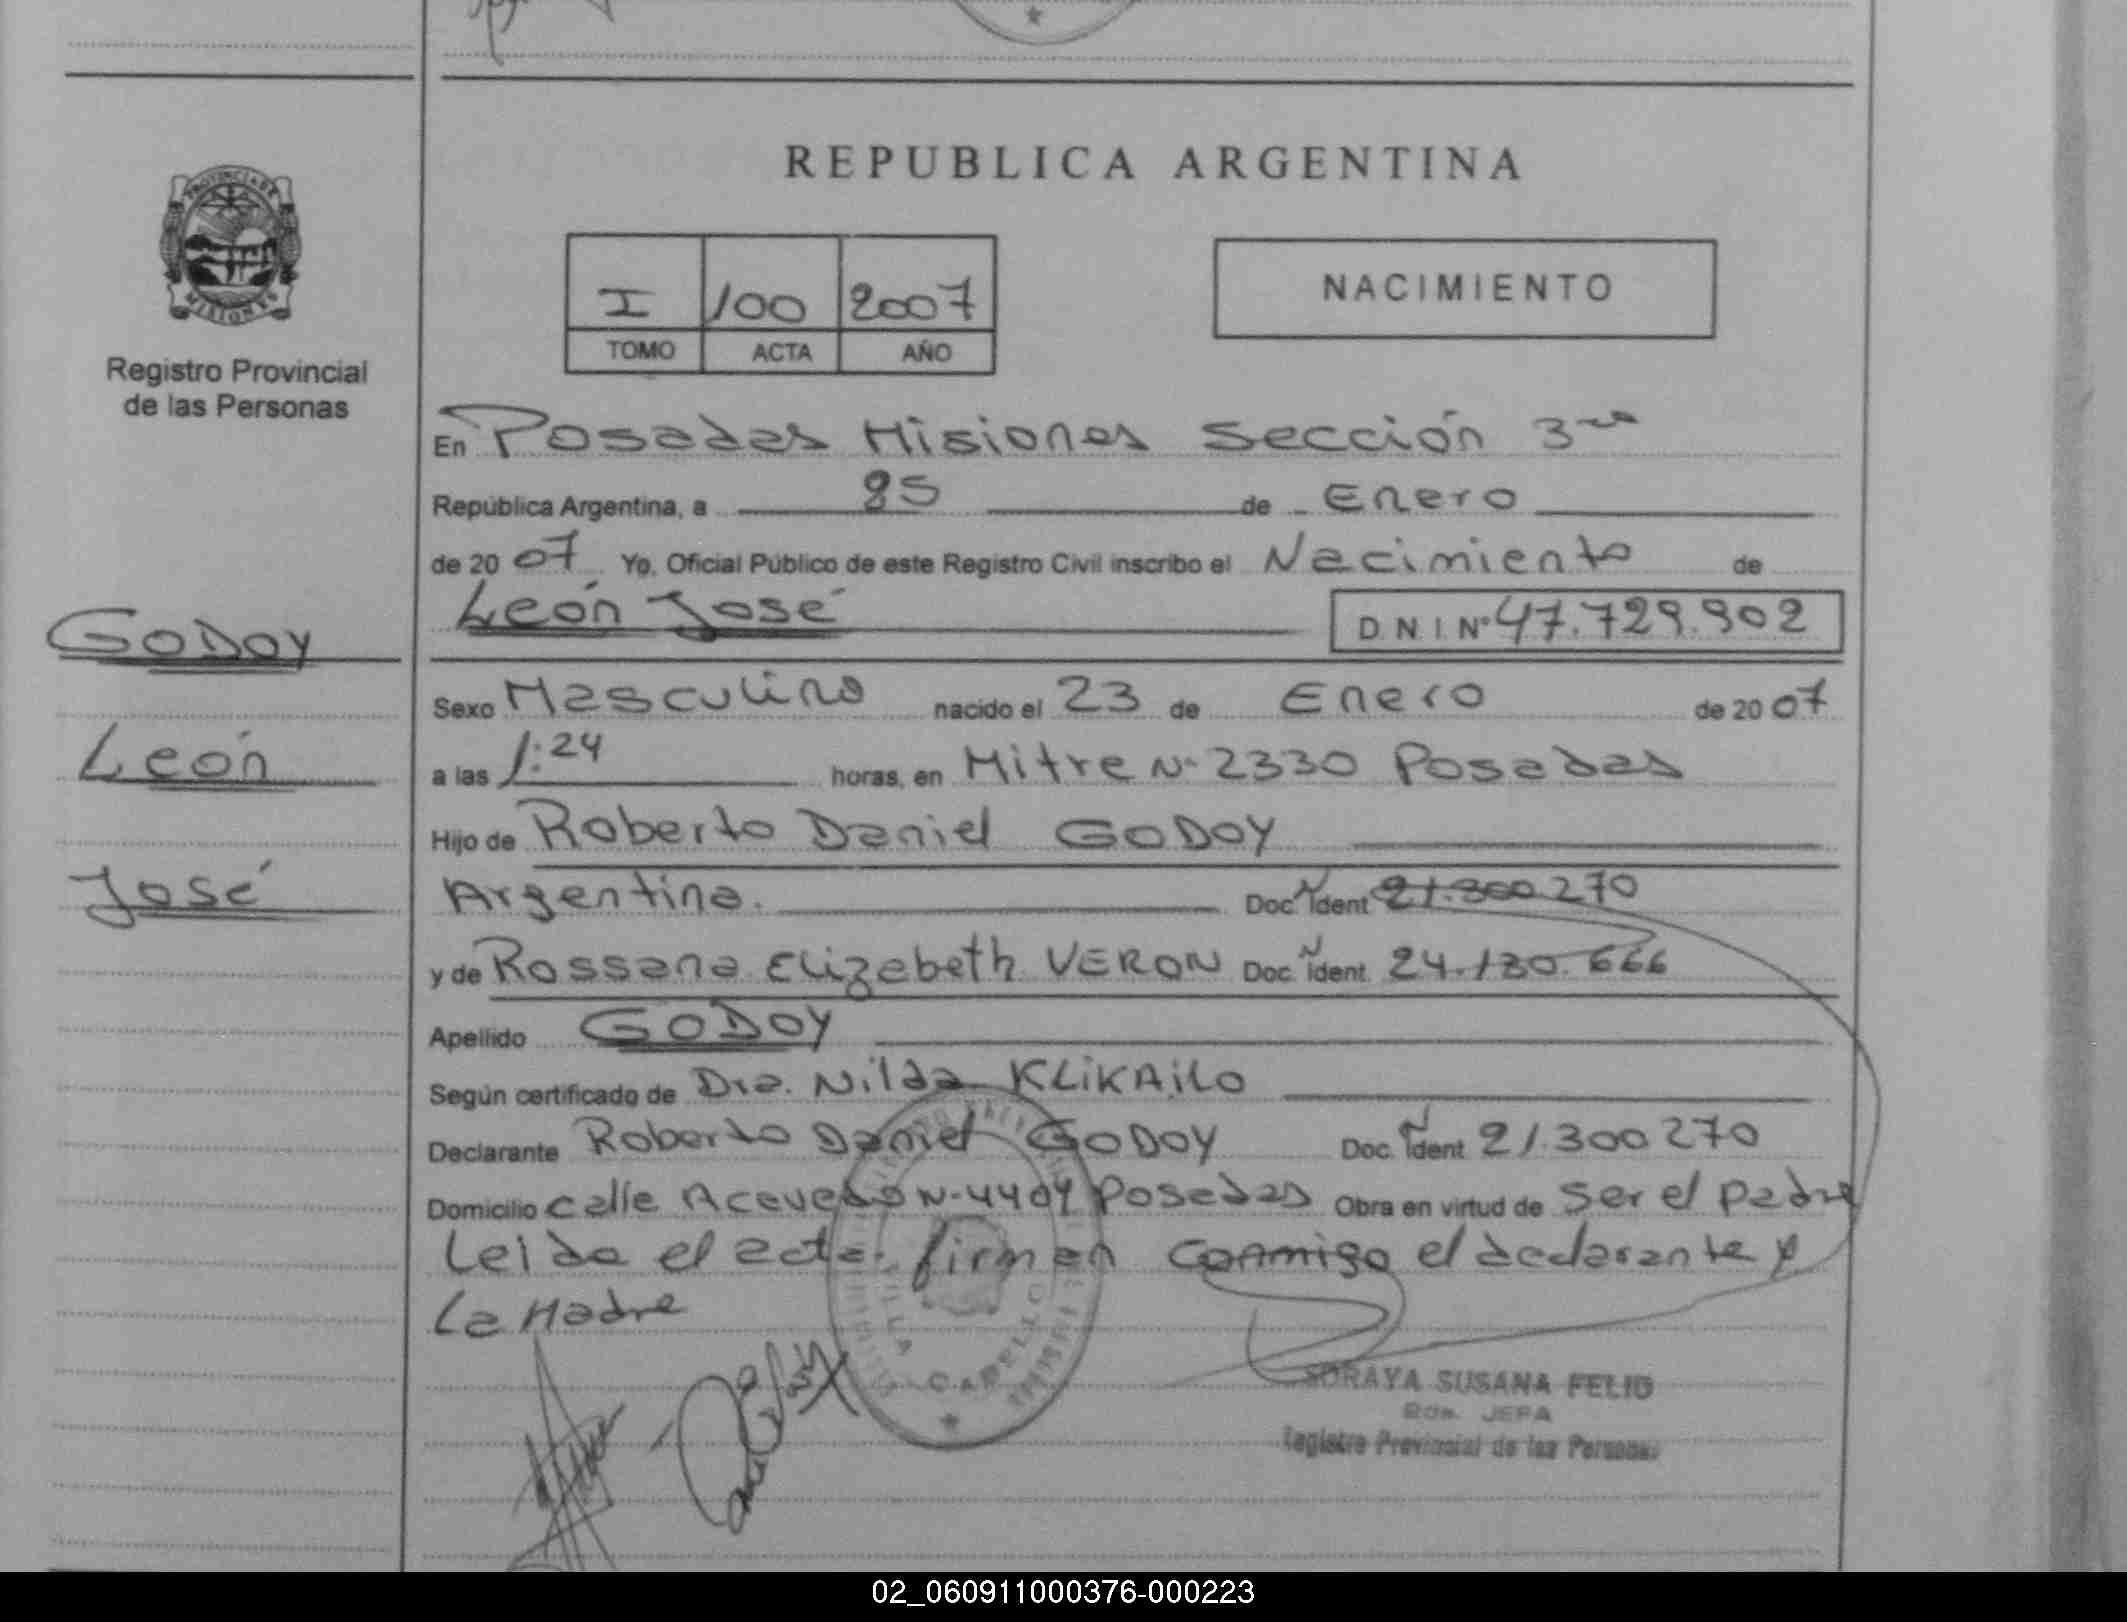 REPUBLICA ARGENTINA
PROVINCIA DE
MISIONES
Registro Provincial
de las Personas
I 100 2007
TOMO ACTA AÑO
NACIMIENTO
En Posadas Misiones Sección 3ra
República Argentina, a 25 de Enero
de 2007 Yo, Oficial Público de este Registro Civil inscribo el Nacimiento de
León José D N I Nº 47.729.902
GODOY
León
José
Sexo Masculino nacido el 23 de Enero de 2007
a las 1:24 horas, en Mitre Nº 2330 Posadas
Hijo de Roberto Daniel GODOY
Argentina. Doc. Ident 21.300 270
y de Rossana Elizabeth VERON Doc. Ident. 24.130.666
Apellido GODOY
Según certificado de Dra. Nilda KLIKAILO
Declarante Roberto Daniel GODOY Doc. Ident 21.300 270
Domicilio calle Acevedo Nº 4409 Posadas Obra en virtud de Ser el padre
Leida el acta firman conmigo el declarante y
La Madre
VILLA CABELLO
SORAYA SUSANA FELIU
JEFA
Registro Provincial de las Personas
02_060911000376-000223